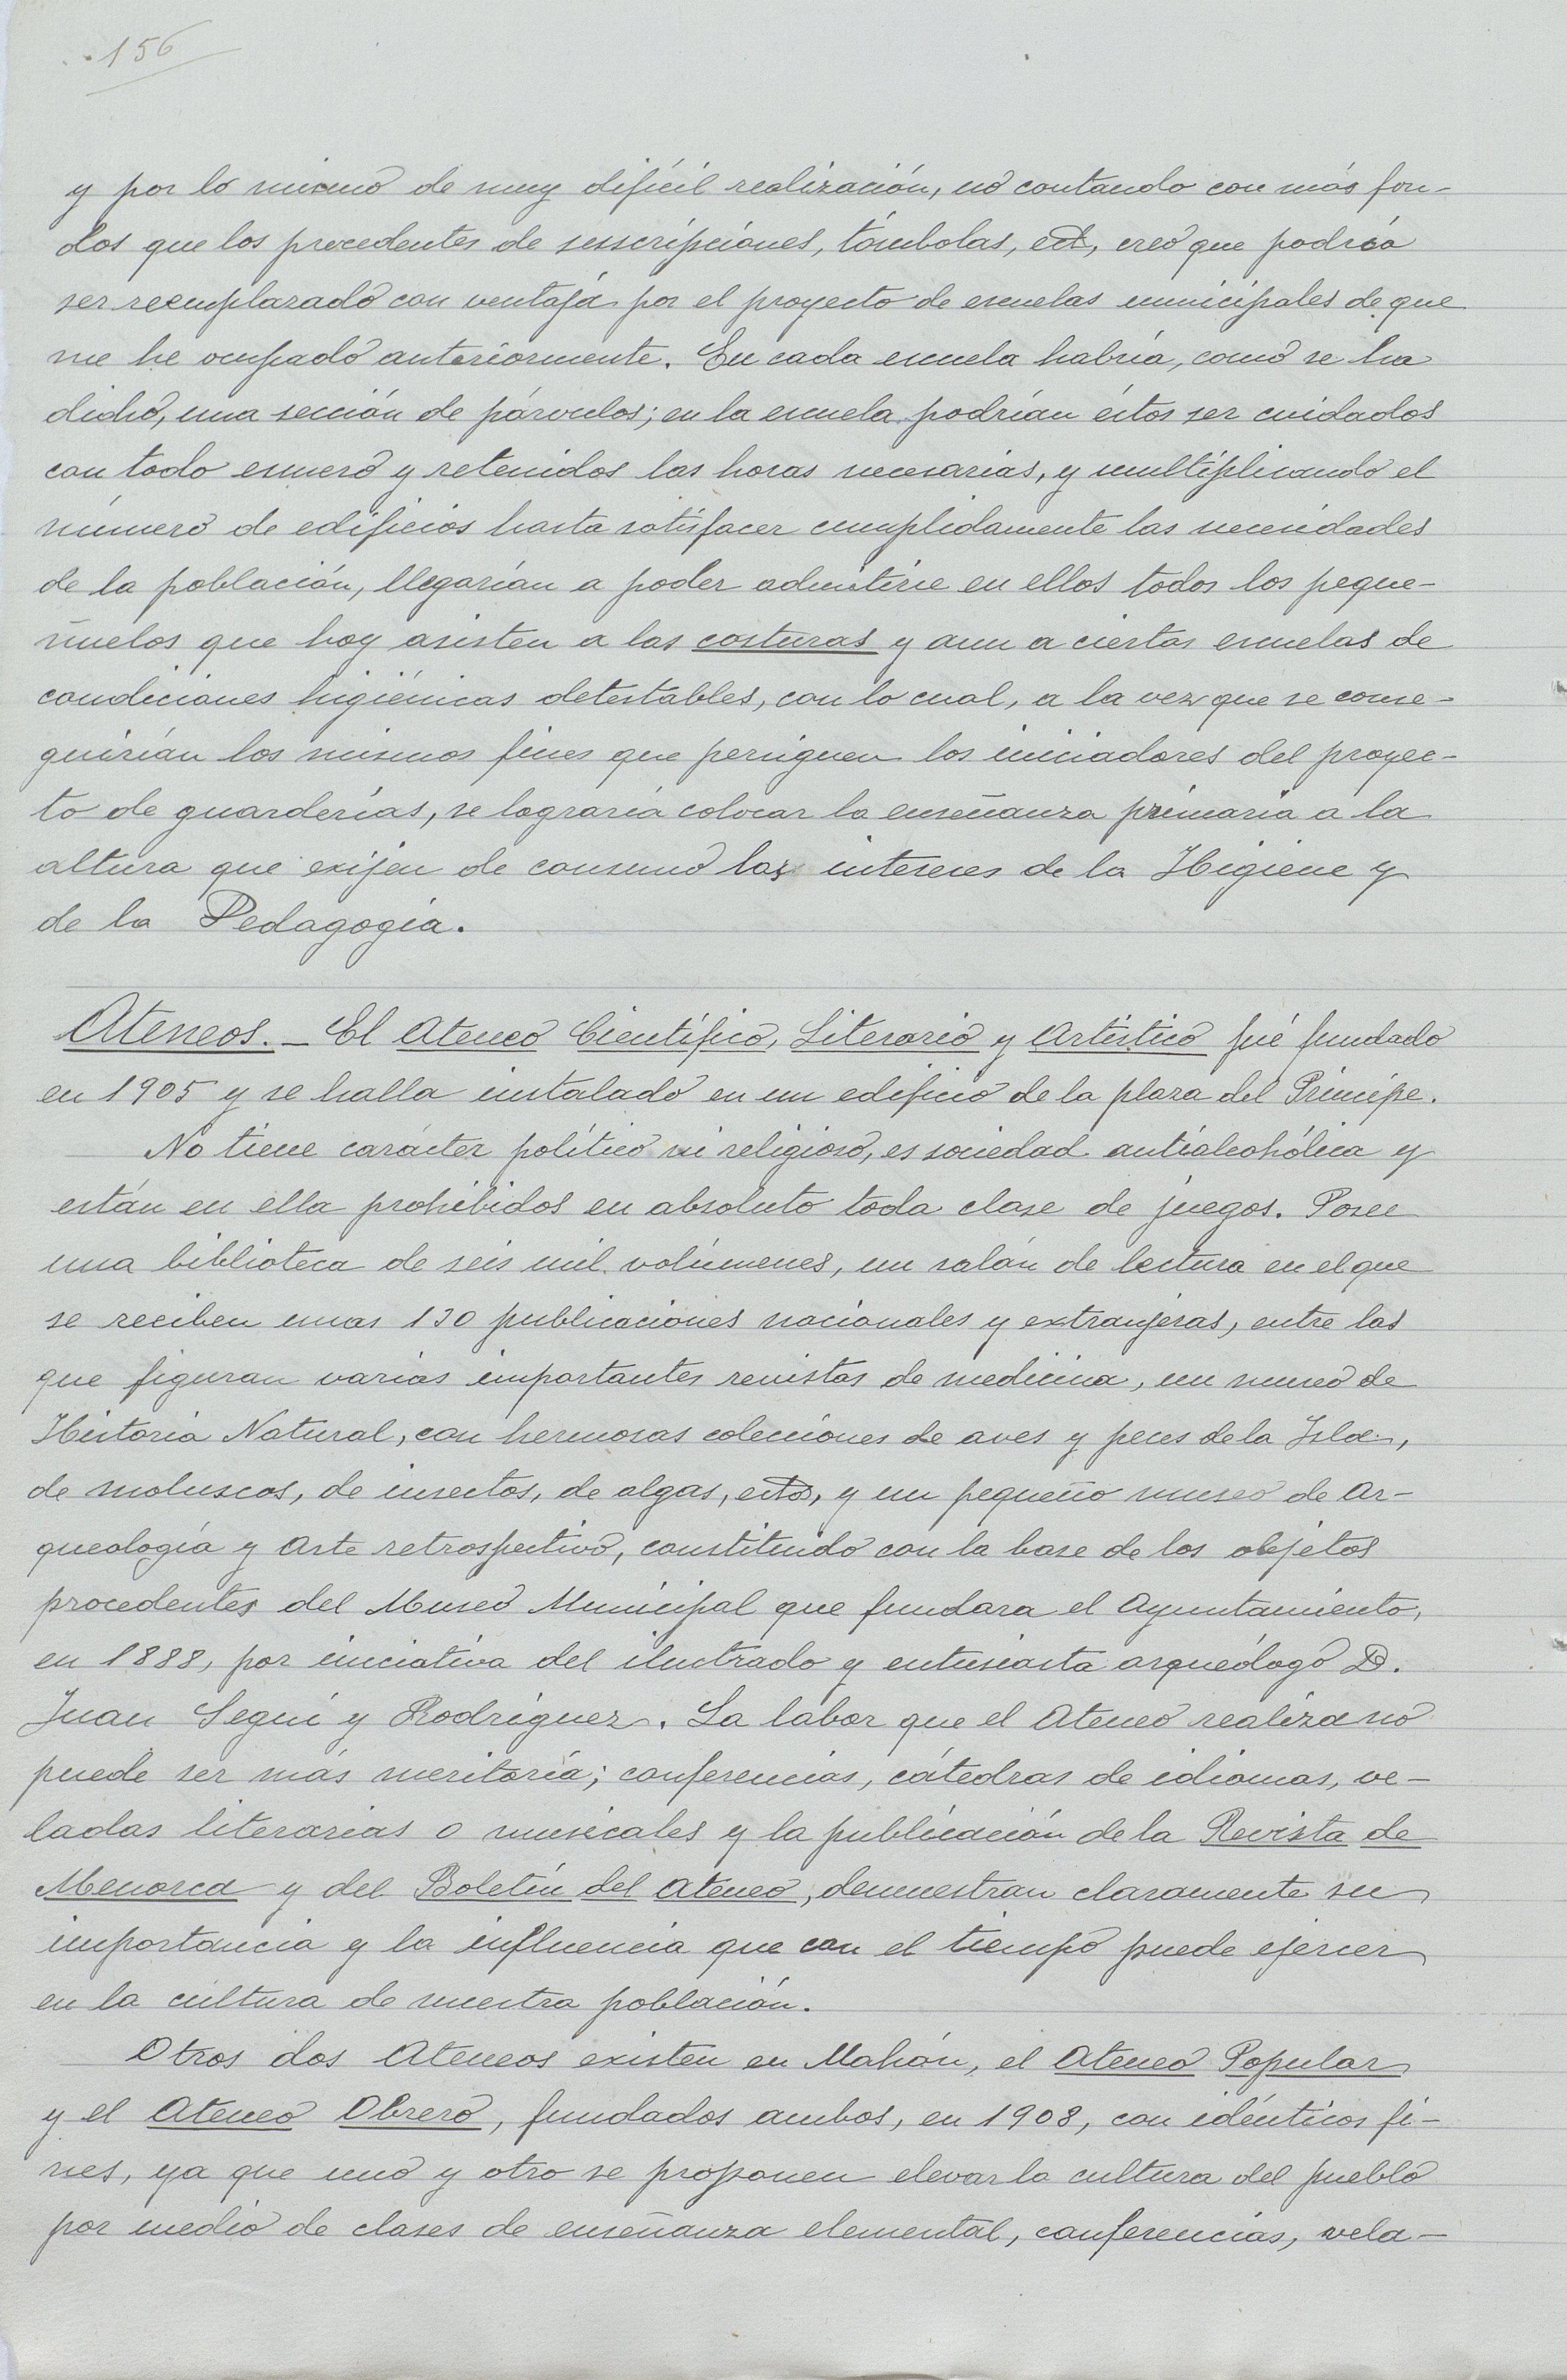 156
y por lo mismo de muy difícil realización, no contando con más fon-
dos que los procedentes de suscripciones, tómbolas, ect, creo que podría
ser reemplazado con ventaja por el proyecto de escuelas municipales de que
me he ocupado anteriormente. En cada escuela habría, como se ha
dicho, una sección de párvulos; en la escuela podrían éstos ser cuidados
con todo esmero y retenidos las horas necesarias, y multiplicando el
número de edificios hasta satisfacer cumplidamente las necesidades
de la población, llegarían a poder admitirse en ellos todos los peque-
ñuelos que hoy asisten a las costuras y aun a ciertas escuelas de
condiciones higiénicas detestables, con lo cual, a la vez que se conse-
guirían los mismos fines que persiguen los iniciadores del proyec-
to de guarderías, se lograría colocar la enseñanza primaria a la
altura que exijen de consuno los intereses de la Higiene y
de la Pedagogía.
Ateneos. — El Ateneo Científico, Literario y Artístico fué fundado
en 1905 y se halla instalado en un edificio de la plaza del Príncipe.
No tiene carácter político ni religioso, es sociedad antialcohólica y
están en ella prohibidos en absoluto toda clase de juegos. Posee
una biblioteca de seis mil volúmenes, un salón de lectura en el que
se reciben unas 130 publicaciones nacionales y extranjeras, entre las
que figuran varias importantes revistas de medicina, un museo de
Historia Natural, con hermosas colecciones de aves y peces de la Isla,
de moluscos, de insectos, de algas, y un pequeño museo de Ar-
queología y Arte retrospectivo, constituido con la base de los objetos
procedentes del Museo Municipal que fundara el Ayuntamiento,
en 1888, por iniciativa del ilustrado y entusiasta arqueólogo D.
Juan Seguí y Rodríguez. La labor que el Ateneo realiza no
puede ser más meritoria; conferencias, cátedras de idiomas, ve-
ladas literarias o musicales y la publicación de la Revista de
Menorca y del Boletín del Ateneo, demuestran claramente su
importancia y la influencia que con el tiempo puede ejercer
en la cultura de nuestra población.
Otros dos Ateneos existen en Mahón, el Ateneo Popular
y el Ateneo Obrero, fundados ambos, en 1908, con idénticos fi-
nes, ya que uno y otro se proponen elevar la cultura del pueblo
por medio de clases de enseñanza elemental, conferencias, vela-